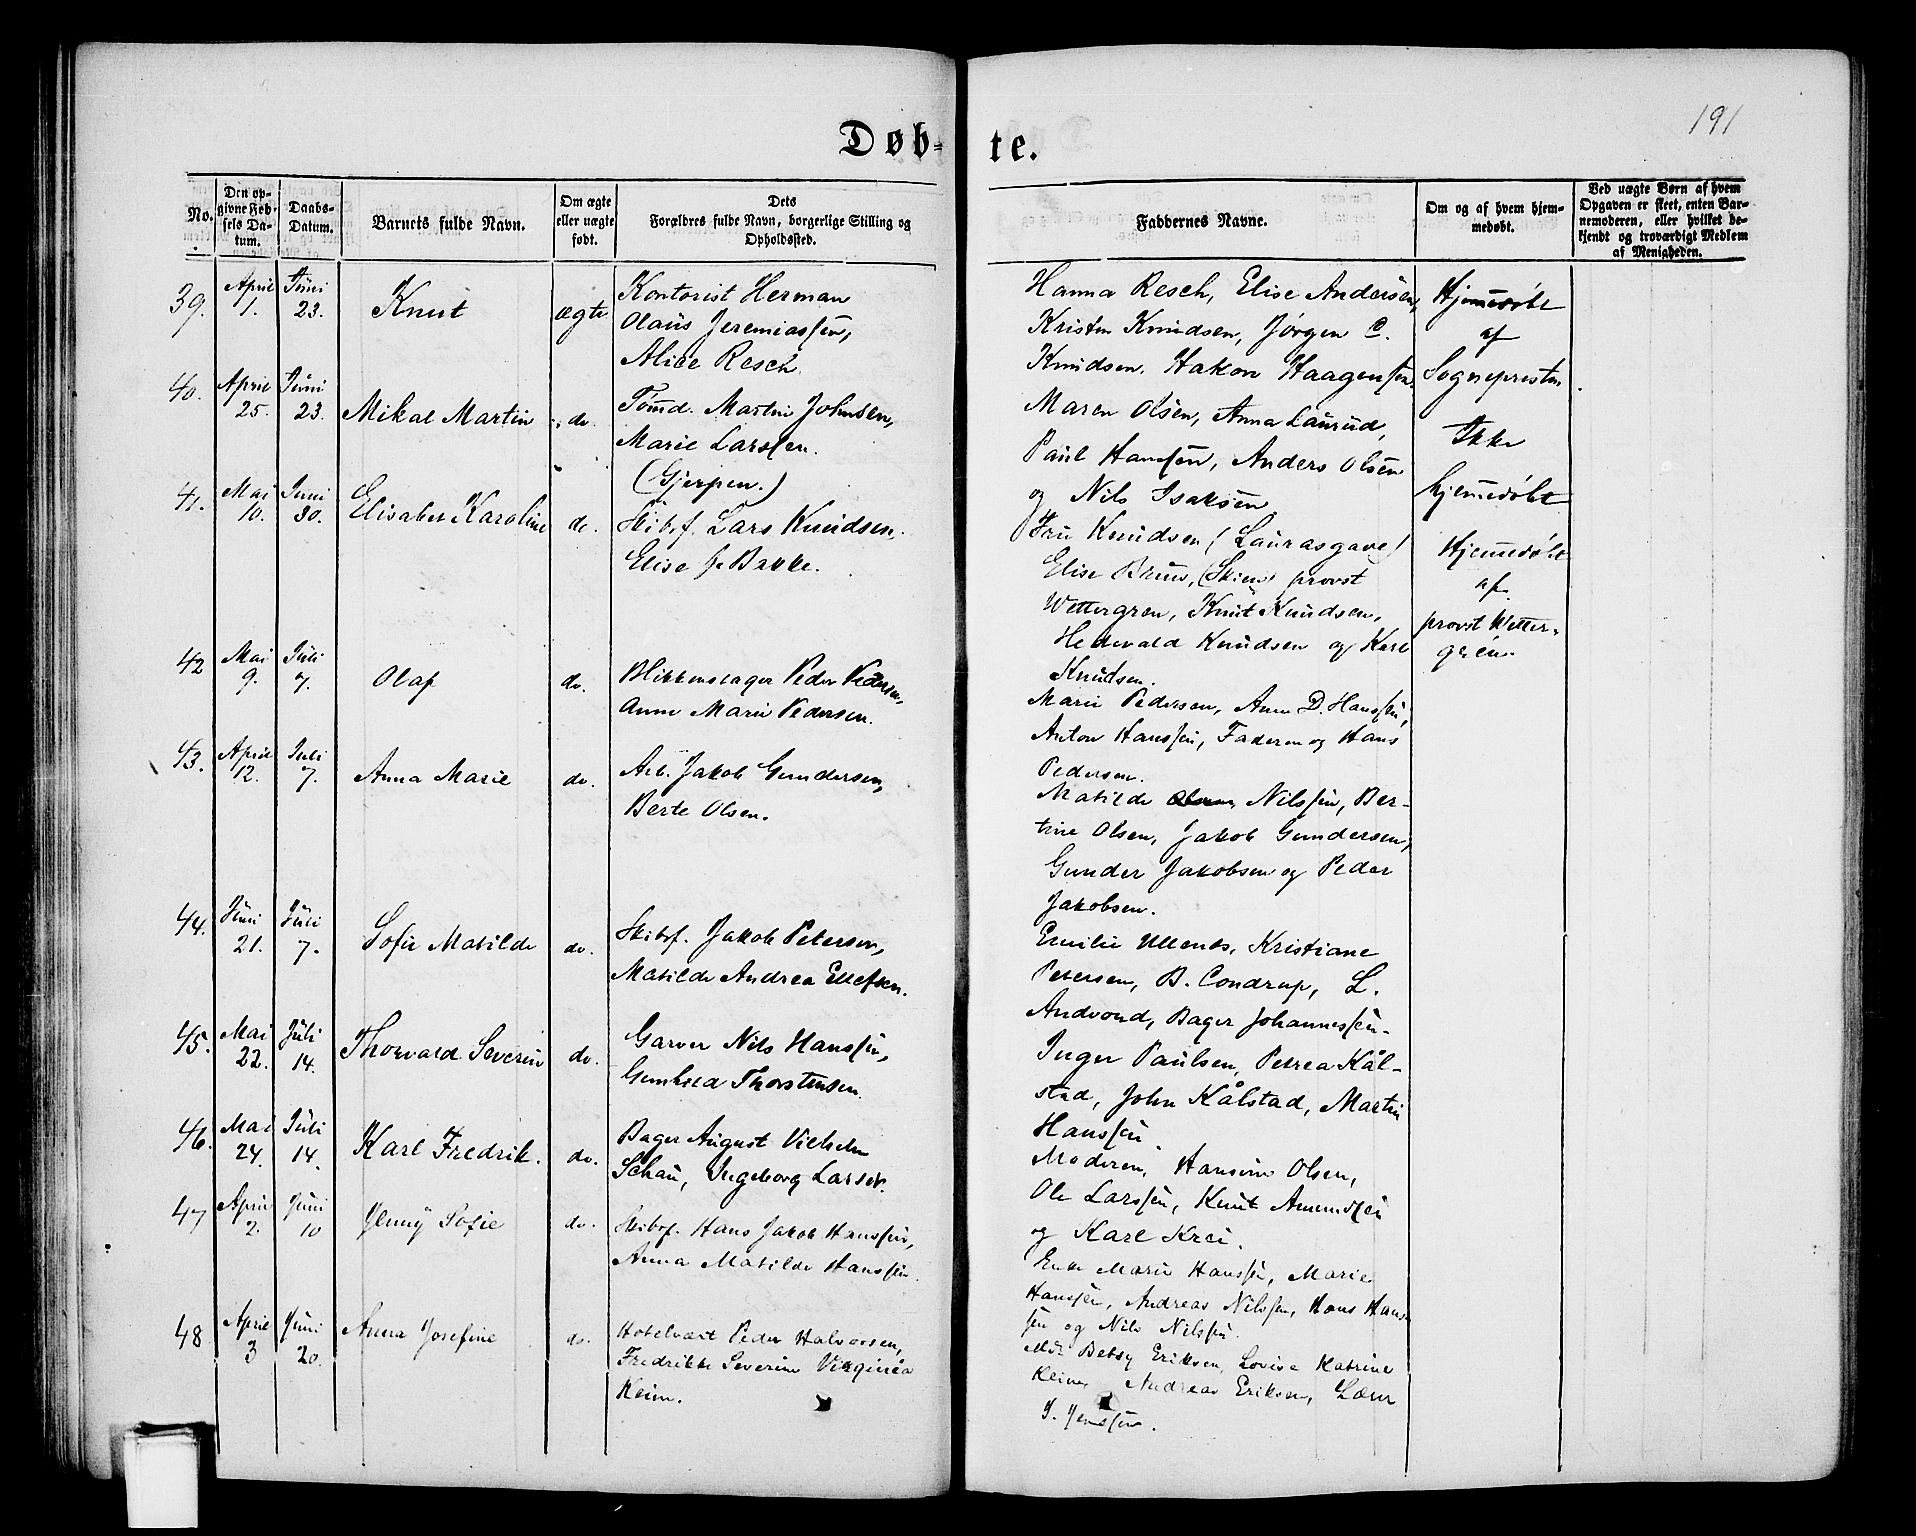 191
Døb-te.
No.
Den op-
givne Føb-
sels Da-
tum.
Daabs-
Datum.
Barnets fulde Navn.
Om ægte
eller uægte
født.
Dets
Forældres fulde Navn, borgerlige Stilling og
Opholdssted.
Faddernes Navne.
Om og af hvem hjem-
medøbt.
Ved uægte Børn af hvem
Opgaven er skeet, enten Bar-
nemoderen, eller hvilket be-
kjendt og troværdigt Medlem
af Menigheden.
39. April 1. Juni 23. Knut ægte
Kontorist Herman
Olaus Jeremiassen,
Alice Resch
Hanna Resch, Elise Andersen,
Kristen Knudsen, Jørgen C.
Knudsen. Hakon Haagensen.
Hjemmedøbt
af
Sogneprestn
40. April 25. Juni 23. Mikal Martin do.
Tømd. Martin Johnsen,
Marie Larssen.
(Gjerpen.)
Maren Olsen, Anna Laurud,
Paul Hanssen, Anders Olsen
og Nils Isaksen
Ikke
hjemmedøbt
41. Mai 10. Juni 30. Elisabet Karoline do.
Skibsf. Lars Knudsen,
Elise f. Bakke.
Fru Knudsen (Laurasgave)
Elise Bruus, (Skien) provst
Wettergren, Knut Knudsen,
Hedevald Knudsen og Karl
Knudsen.
Hjemmedøbt
af
provst Wetter-
gren.
42 Mai 9. Juli 7. Olaf do.
Blikkenslager Peder Pedersen,
Anne Marie Pedersen.
Marie Pedersen, Anne D. Hanssen,
Anton Hanssen, Faderen og Hans
Pedersen.
43. April 12. Juli 7. Anna Marie do.
Arb. Jakob Gundersen,
Berte Olsen.
Matilde Nilssen, Ber-
tine Olsen, Jakob Gundersen,
Gunder Jakobsen og Peder
Jakobsen.
44. Juni 21. Juli 7. Sofie Matilde do.
Skibsf. Jakob Petersen,
Matilde Andrea Ellefsen.
Emilie Ullenes, Kristiane
Petersen, B. Condrup, L.
Andvond, Bager Johannessen.
45. Mai 22. Juli 14. Thorvald Severin do.
Garver Nils Hanssen,
Gunhild Thorstensen.
Inger Paulsen, Petrea Kål-
stad, John Kålstad, Martin
Hanssen
46. Mai 24. Juli 14. Karl Fredrik. do.
Bager August Vilhelm
Schau, Ingeborg Larsen.
Moderen, Hansine Olsen,
Ole Larssen, Knut Amundsen
og Karl Krei.
47 April 2. Juni 10 Jenny Sofie do.
Skibsf. Hans Jakob Hanssen,
Anna Matilde Hanssen.
Enke Marie Hanssen, Marie
Hanssen, Andreas Nilssen, Hans Hans-
sen og Nils Nilssen.
48 April 3 Juni 20. Anna Josefine do.
Hotelvært Peder Halvorsen,
Fredrikke Severine Virginia
Keim.
Betsy Eriksen, Lovise Katrine
Keim, Andreas Eriksen,
J. Jenssen.